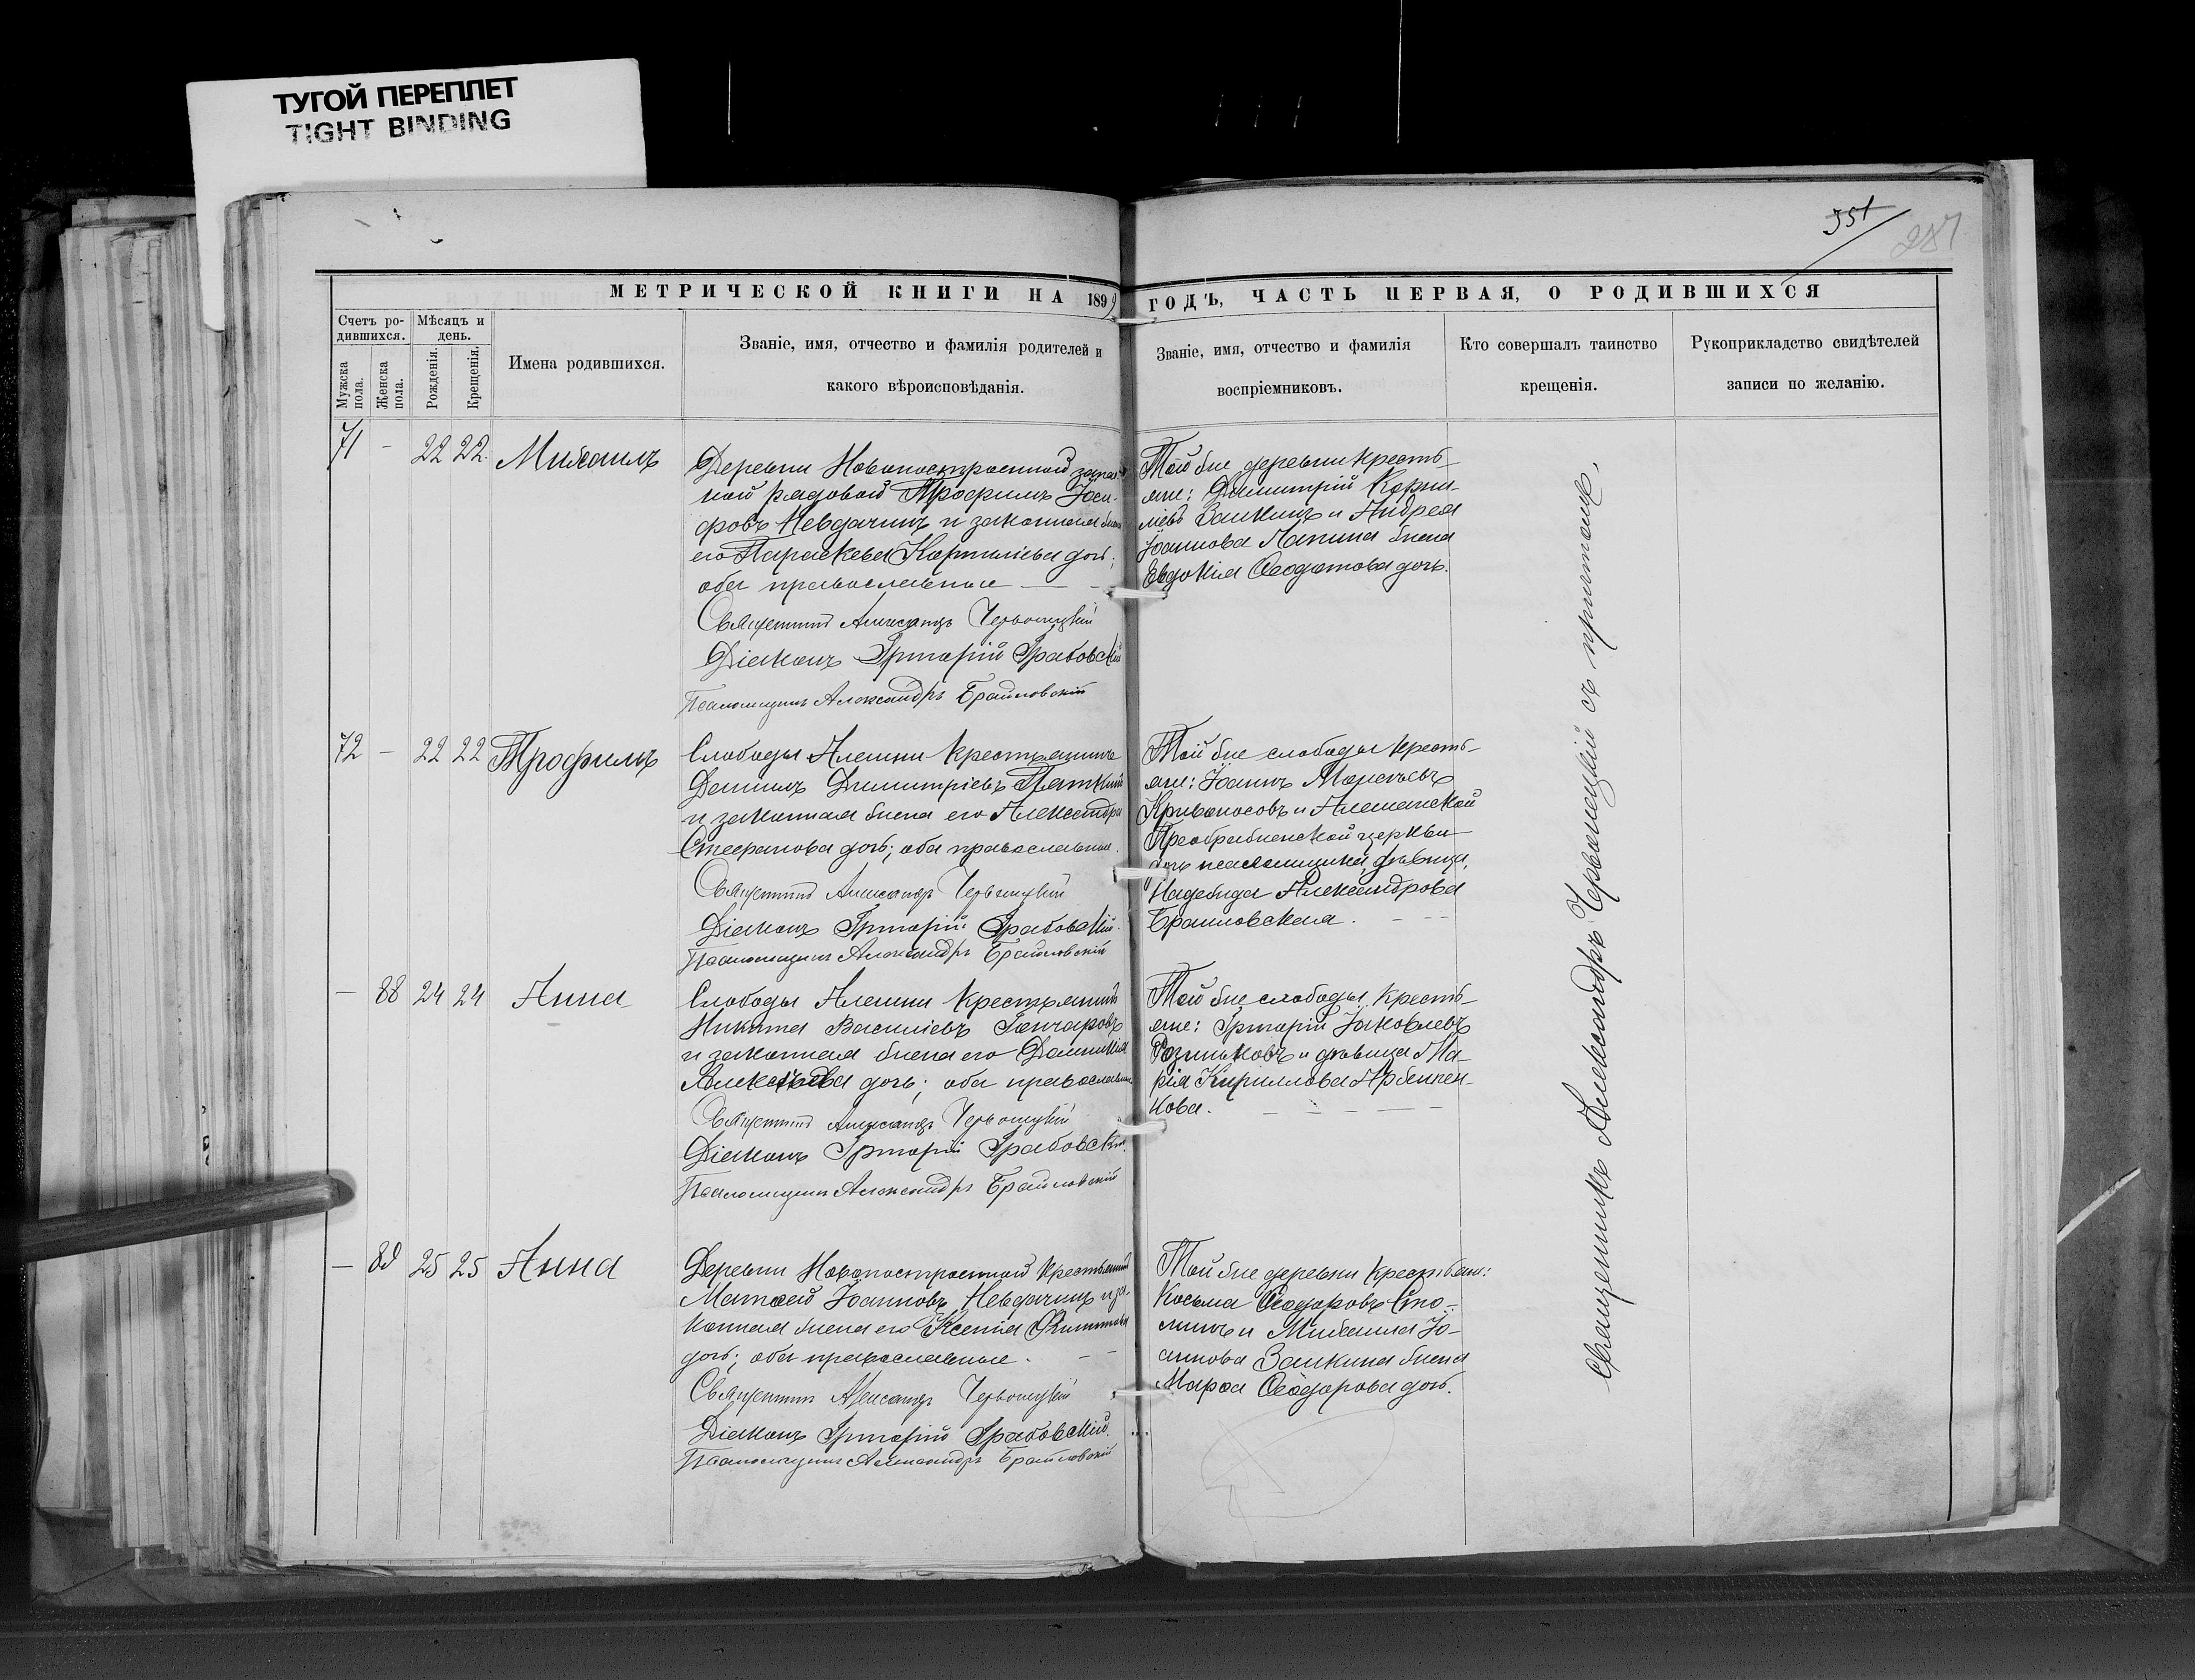 ТУГОЙ ПЕРЕПЛЕТ
TIGHT BINDING
351
287
МЕТРИЧЕСКОЙ КНИГИ НА 1899 ГОДЪ, ЧАСТЬ ПЕРВАЯ, О РОДИВШИХСЯ
Счетъ ро-
дившихся.
Мѣсяцъ и
день.
Мужска
пола.
Женска
пола.
Рожденія.
Крещенія.
Имена родившихся.
Званіе, имя, отчество и фамилія родителей и
какого вѣроисповѣданія.
Званіе, имя, отчество и фамилія
воспріемниковъ.
Кто совершалъ таинство
крещенія.
Рукоприкладство свидѣтелей
записи по желанію.
71 - 22 22. Михаилъ
Деревни Новопостроенной запас-
ной рядовой Трофимъ Іоси-
фовъ Невдачинъ и законная жена
его Параскева Корнилiева дочь;
оба православные
Священникъ Александръ Червонецкій
Діаконъ Григорій Грабовскій
Псаломщикъ Александръ Браиловскій
Той же деревни кресть-
яне: Димитрій Корни-
ліевъ Заикинъ и Андрея
Іоаннова Лапина жена
Евдокія Ѳеодотова дочь.
72 - 22 22 Трофимъ
Слободы Алешни крестьянинъ
Даніилъ Димитріевъ Пяткинъ
и законная жена его Александра
Стефанова дочь; оба православные.
Священникъ Александръ Червонецкій
Діаконъ Григорій Грабовскій.
Псаломщикъ Александръ Браиловскій
Той же слободы кресть-
яне: Іоаннъ
Кривоносовъ и Алешанской
Преображенской церкви
дочь псаломщика, дѣвица,
Надежда Александрова
Браиловская.
- 88 24 24 Анна
Слободы Алешни крестьянинъ
Никита Василіевъ Гончаровъ
и законная жена его Домникія
Алексѣева дочь; оба православные
Священникъ Александръ Червонецкій
Діаконъ Григорій Грабовскій.
Псаломщикъ Александръ Браиловскій
Той же слободы кресть-
яне: Григорій Іаковлевъ
Розиньковъ и дѣвица Ма-
рія Кириллова
кова.
- 89 25 25 Анна
Деревни Новопостроенной крестьянинъ
Матѳей Іоанновъ Невдачинъ и за-
конная жена его Ксенія Филиппова
дочь; оба православные.
Священникъ Александръ Червонецкій
Діаконъ Григорій Грабовскій.
Псаломщикъ Александръ Браиловскій
Той же деревни крестьяне:
Косьма Ѳеодоровъ Сто-
линъ и Михаила Іо-
аннова Заикина жена
Марѳа Ѳеодорова дочь.
Священникъ Александръ Червонецкій съ причтомъ.